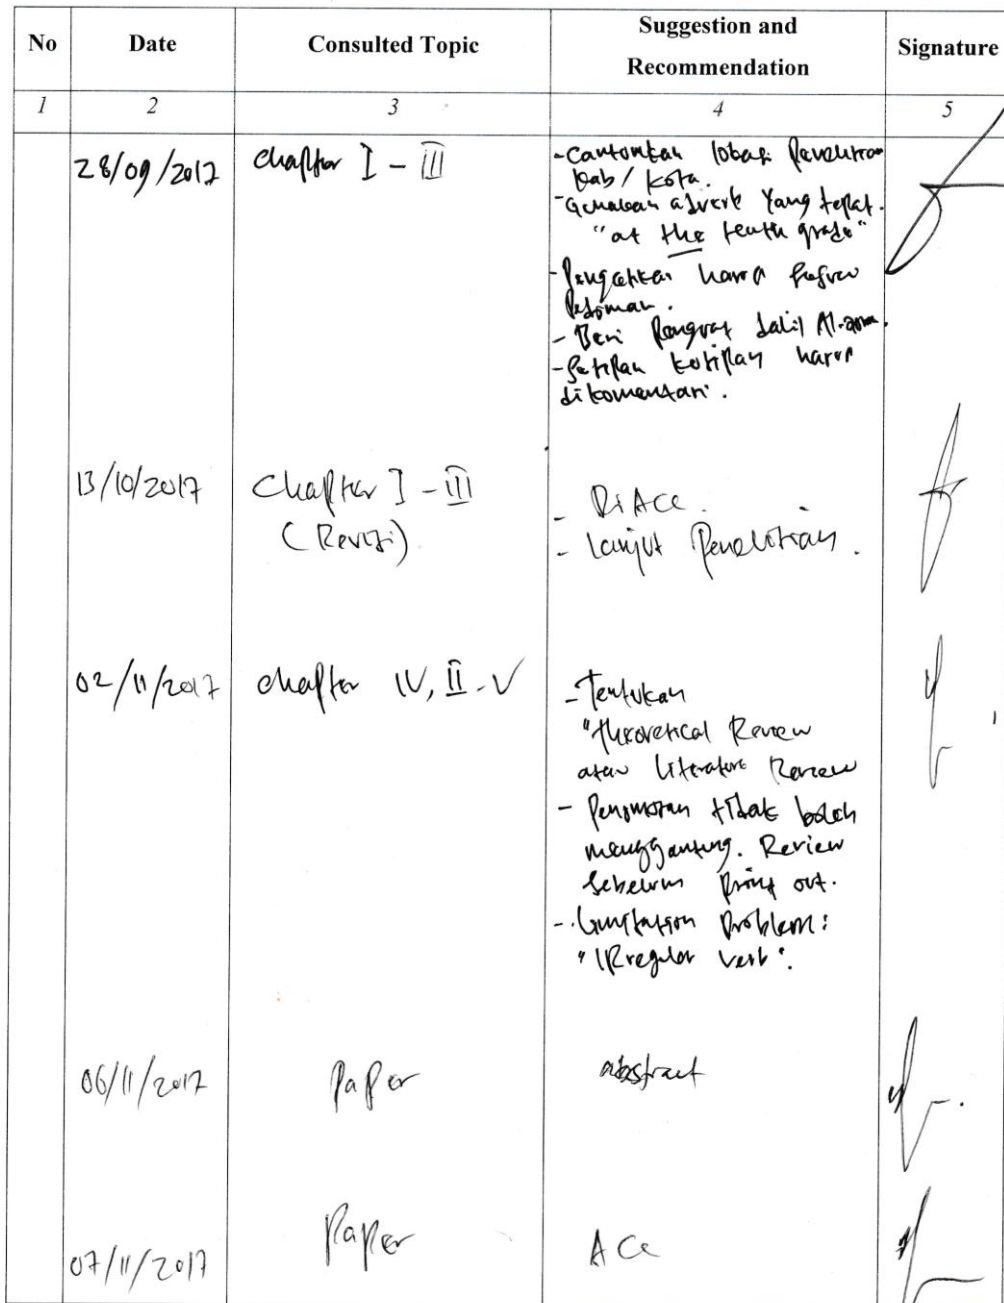 No Date Consulted Topic Suggestion and Recommendation Signature
1 2 3 4 5
28/09/2017 chapter I - III
- Cantumkan lokasi Penelitian
Kab/Kota.
- Gunakan adverb Yang tepat.
"at the tenth grade"
- Pengetikan harus sesuai
Pedoman.
- Beri Penguat dalil
- Setiap kutipan harus
dikomentari.
13/10/2017 Chapter I - III
(Revisi)
- Di Acc.
- lanjut Penelitian.
02/11/2017 chapter IV, II - V
- Tentukan
"theoretical Review
atau literature Review
- Penomoran tidak boleh
menggantung. Review
sebelum Print out.
- limitation Problem:
"IRregular verb".
06/11/2017 Paper abstract
07/11/2017 Paper Acc